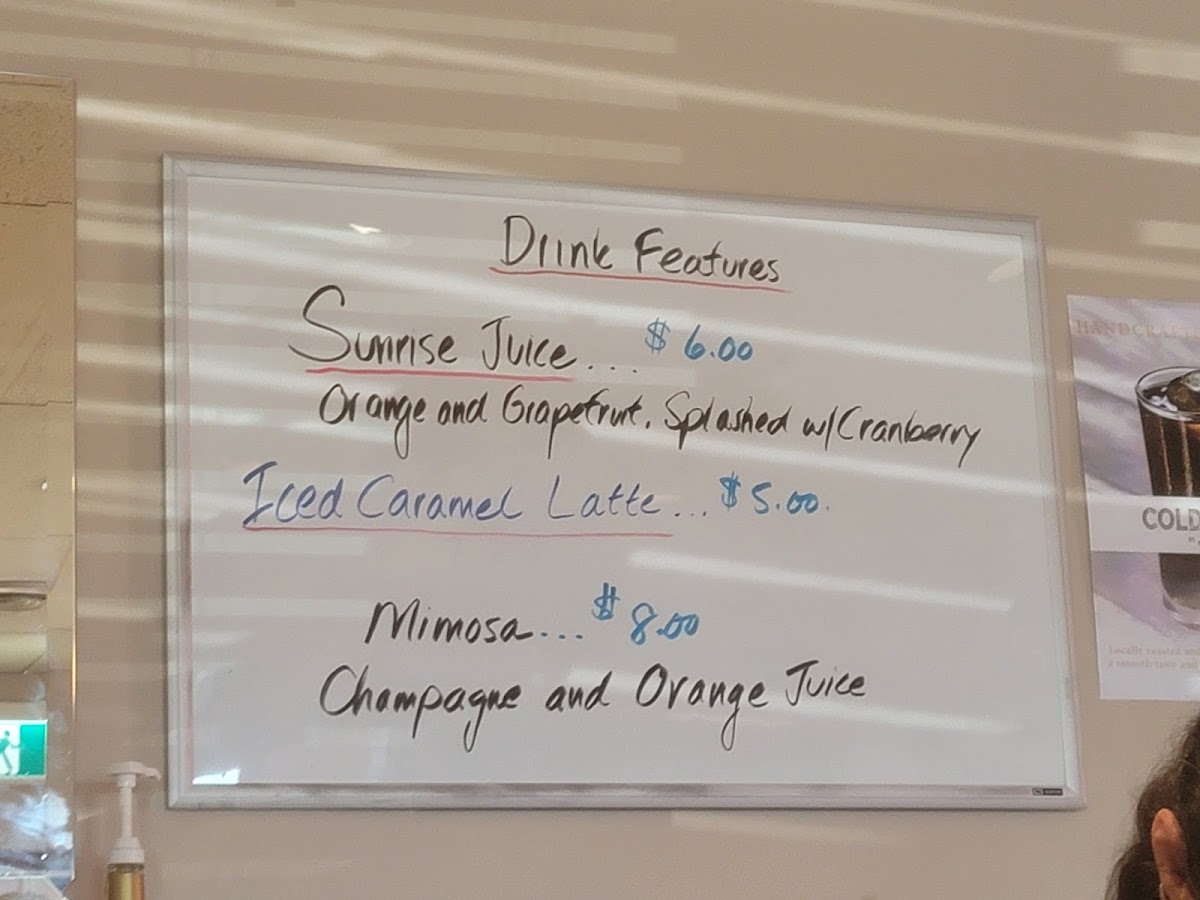 Drink Features
Sunrise Juice... $6.00
Orange and Grapefruit. Splashed w/Cranberry
Iced Caramel Latte... $5.00.
Mimosa... $8.00
Champagne and Orange Juice
HANDCRAFT
COLD
Locally roasted and
a smooth taste and